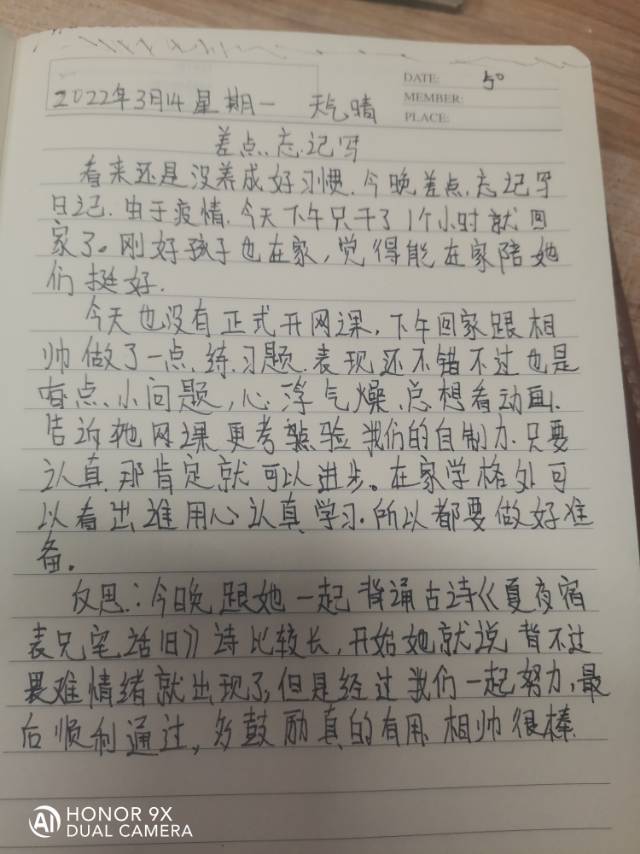 DATE: 5°
MEMBER:
PLACE:
2022年3月14 星期一 天气晴
差点忘记写
看来还是没养成好习惯.今晚差点忘记写
日记.由于疫情.今天下午只干了1个小时就回
家了。刚好孩子也在家,觉得能在家陪她
们挺好.
今天也没有正式开网课,下午回家跟相
帅做了一点练习题.表现还不错不过也是
有点小问题,心浮气燥.总想看动画.
告诉她网课更考验我们的自制力.只要
认真那肯定就可以进步。在家学格外可
以看出谁用心认真学习.所以都要做好准
备。
反思:今晚跟她一起背诵古诗《夏夜宿
表兄宅话旧》诗比较长,开始她就说背不过
畏难情绪就出现了,但是经过我们一起努力,最
后顺利通过,多鼓励真的有用.相帅很棒.
HONOR 9X
DUAL CAMERA